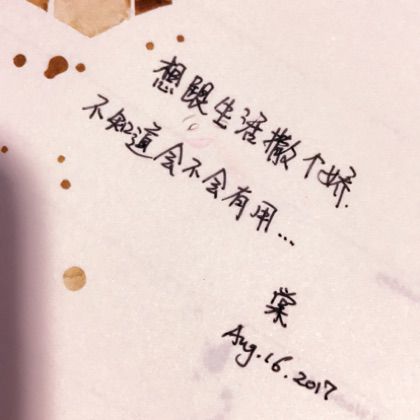 想跟生活撒个娇.
不知道会不会有用...
棠
Aug.16.2017